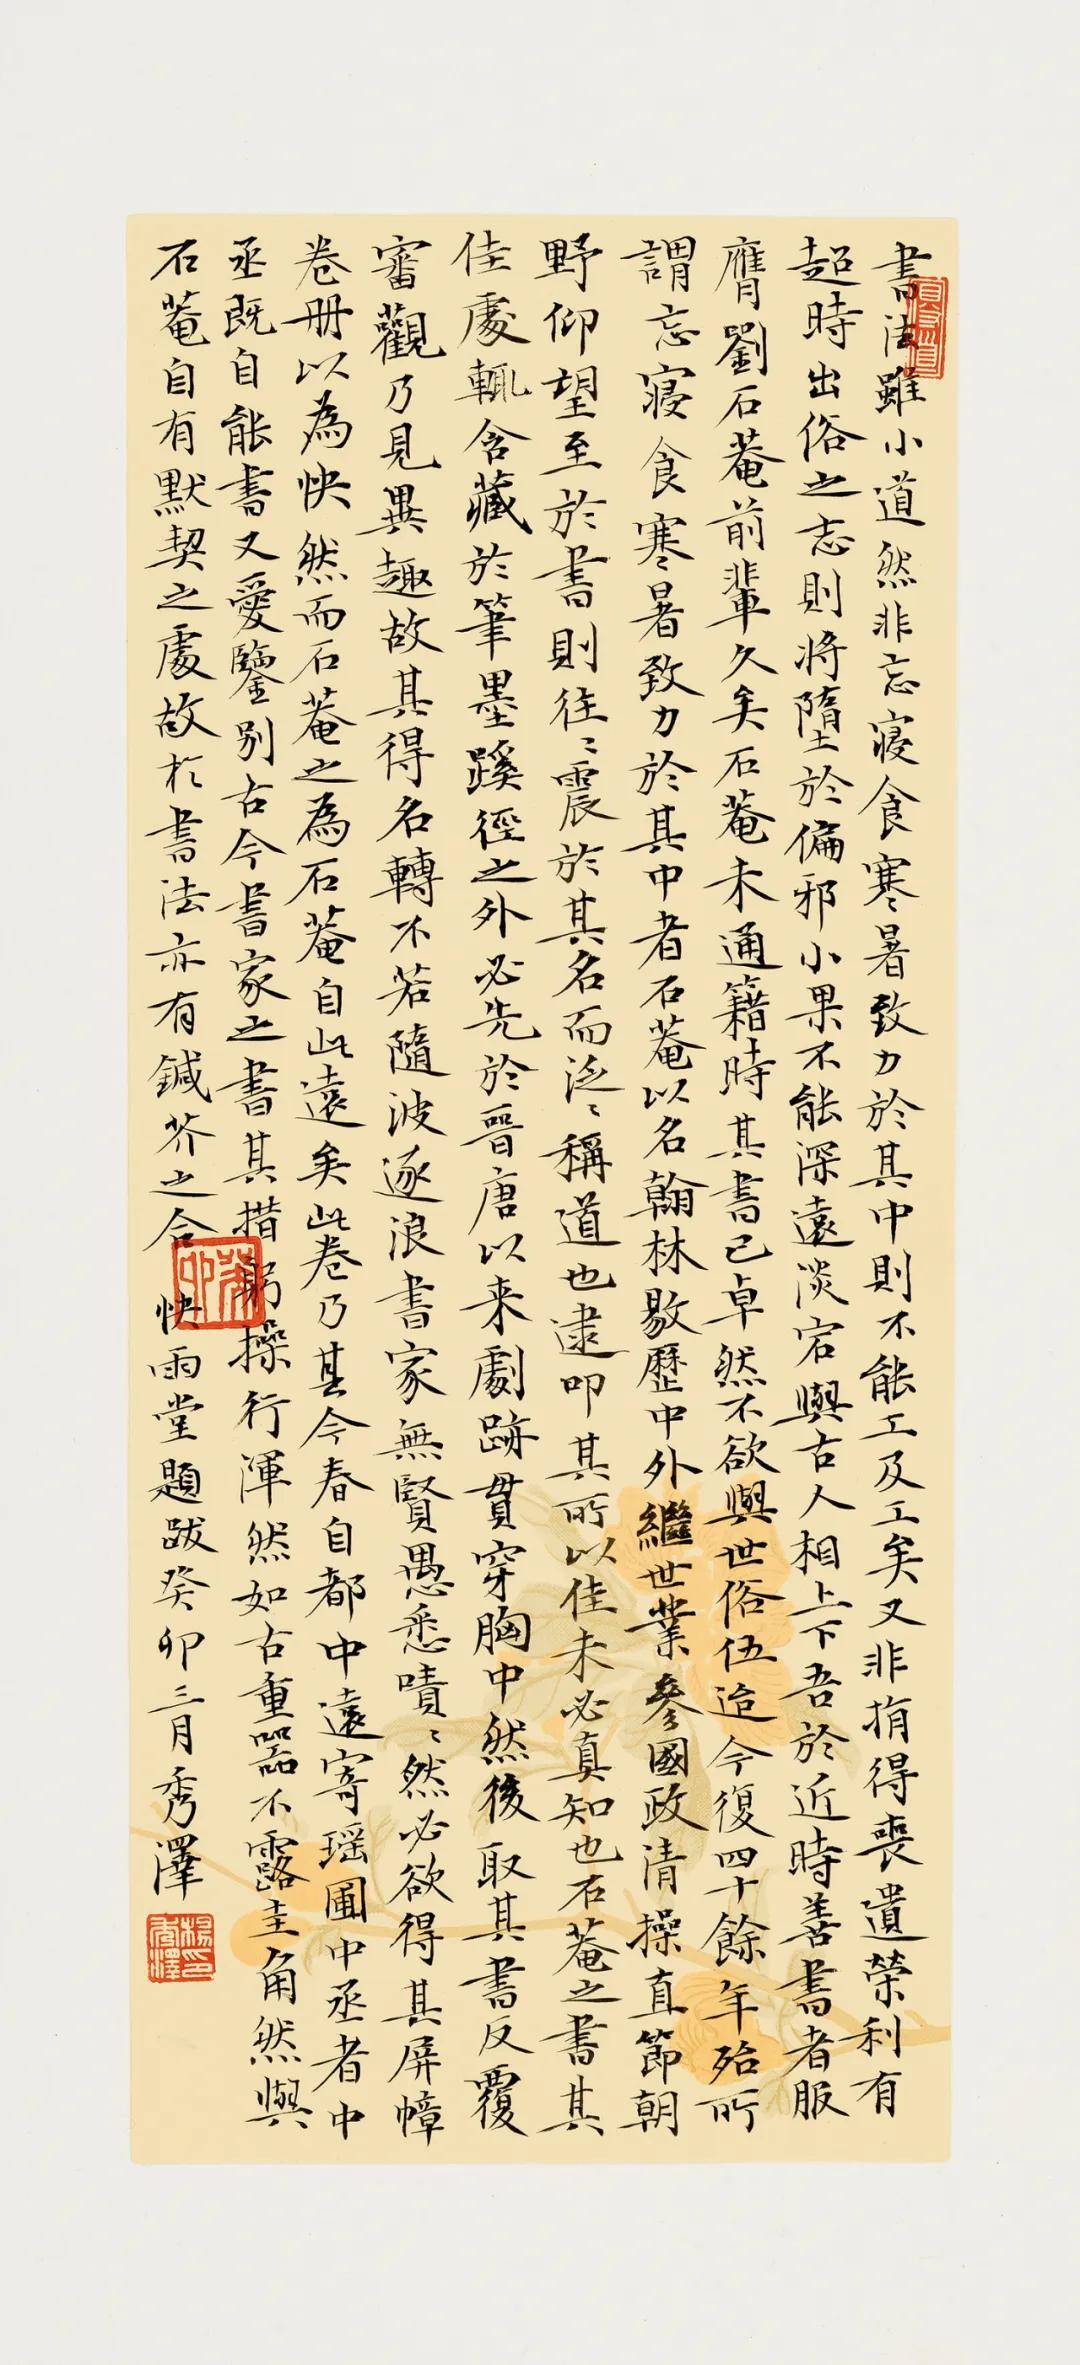 書法雖小道然非忘寢食寒暑致力於其中則不能工及工矣又非捐得喪遺榮利有
超時出俗之志則將墮於偏邪小果不能深遠淡宕與古人相上下吾於近時善書者服
膺劉石菴前輩久矣石菴未通籍時其書已卓然不欲與世俗伍迨今復四十餘年殆所
謂忘寢食寒暑致力於其中者石菴以名翰林敭歷中外繼世業參國政清操直節朝
野仰望至於書則往〻震於其名而泛〻稱道也逮叩其所以佳未必真知也石菴之書其
佳處輒含藏於筆墨蹊徑之外必先於晉唐以来劇跡貫穿胸中然後取其書反覆
審觀乃見異趣故其得名轉不若隨波逐浪書家無賢愚悉嘖〻然必欲得其屏幛
卷册以為快然而石菴之為石菴自此遠矣此卷乃其今春自都中遠寄瑶圃中丞者中
丞既自能書又愛鑒别古今書家之書其措躬操行渾然如古重器不露圭角然與
石菴自有默契之處故於書法亦有鍼芥之合 快雨堂題跋癸卯三月秀澤
楊秀澤印